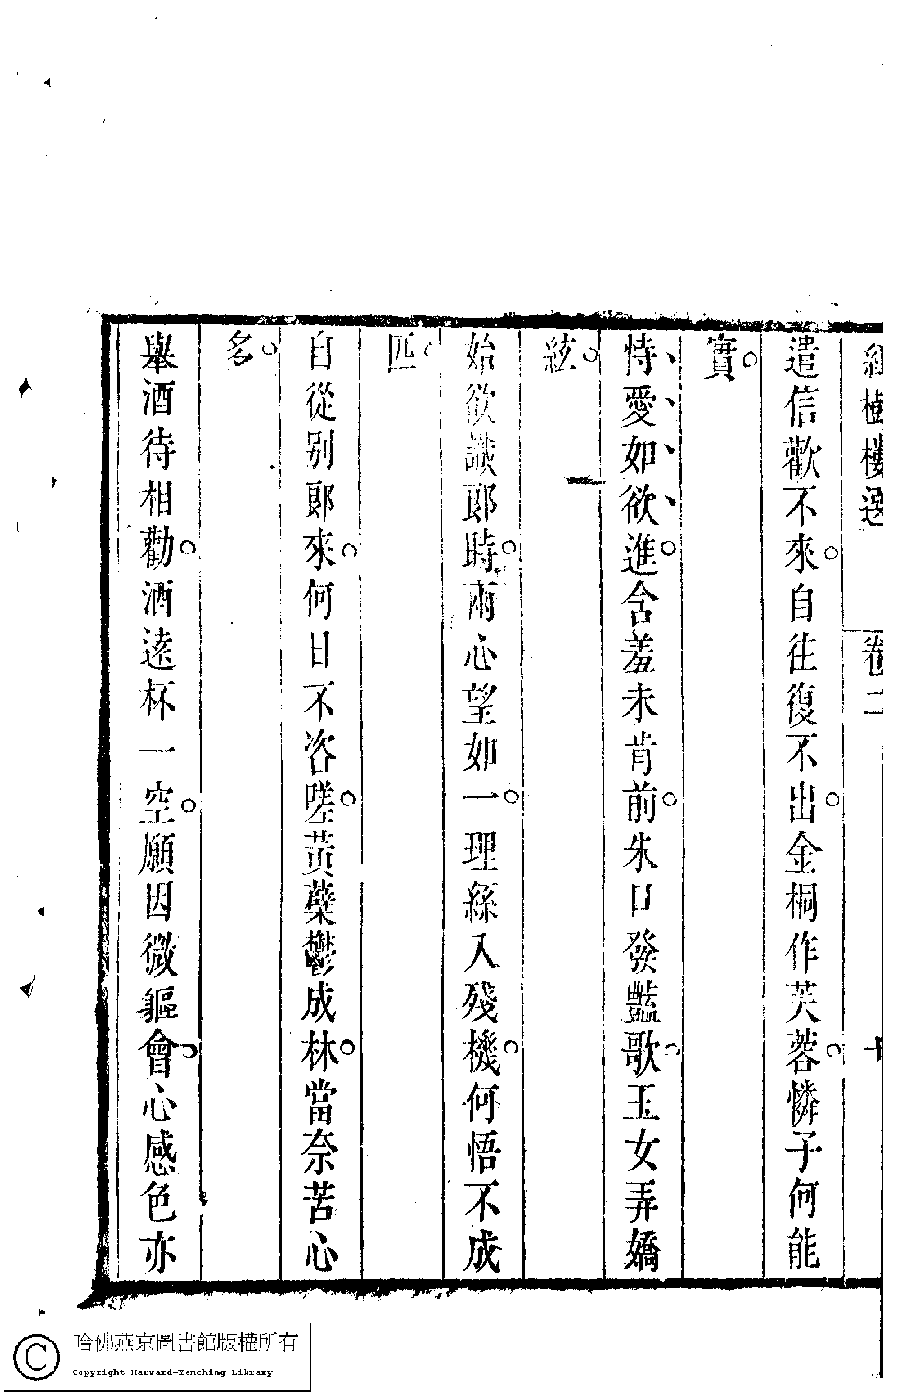 紅樹樓選 卷二 十
遣信歡不來自往復不出金桐作芙蓉憐子何能
實
恃愛如欲進含羞未肯前朱口發豔歌玉女弄嬌
絃
始欲識郎時兩心望如一理絲入殘機何悟不成
匹
自從别郎來何日不咨嗟黃蘗鬱成林當奈苦心
多
舉酒待相勸酒還杯一空願因微軀會心感色亦
哈佛燕京圖書館版權所有
Copyright Harvard-Yenching Library